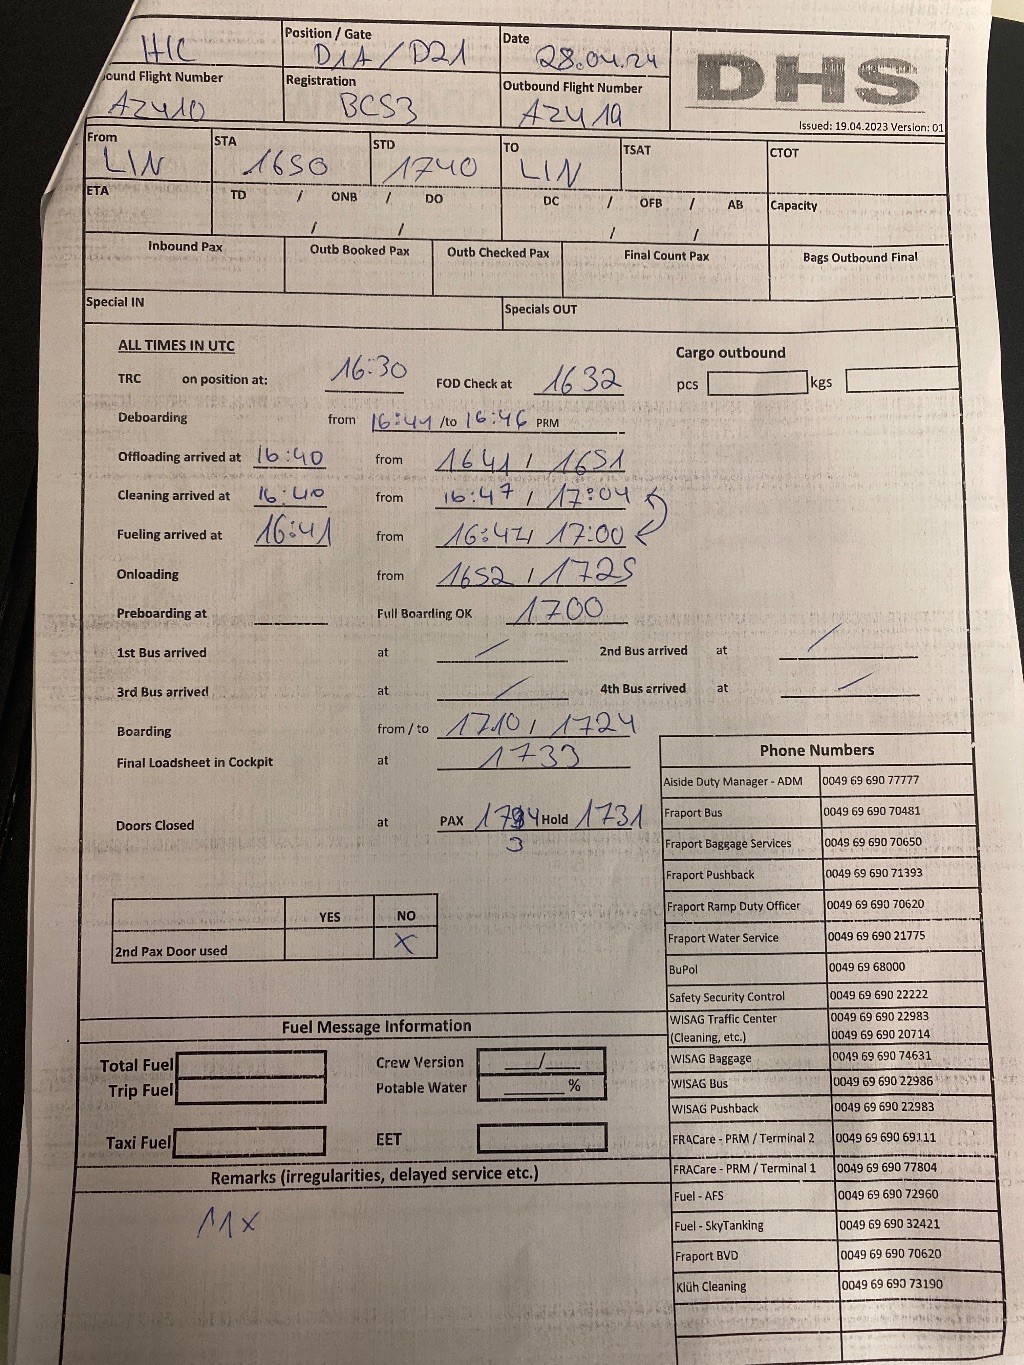 HIC
Position / Gate
D1A / D21
Date
28.04.24
DHS
ound Flight Number
AZ410
Registration
BCS3
Outbound Flight Number
AZ419
Issued: 19.04.2023 Version: 01
From
LIN
STA
1650
STD
1740
TO
LIN
TSAT
CTOT
ETA
TD / ONB / DO
/ /
DC / OFB / AB
/ /
Capacity
Inbound Pax
Outb Booked Pax
Outb Checked Pax
Final Count Pax
Bags Outbound Final
Special IN
Specials OUT
ALL TIMES IN UTC
Cargo outbound
TRC on position at: 16:30 FOD Check at 1632 pcs kgs
Deboarding from 16:41 /to 16:46 PRM
Offloading arrived at 16:40 from 1641 / 1651
Cleaning arrived at 16:40 from 16:47 / 17:04
Fueling arrived at 16:41 from 16:47 / 17:00
Onloading from 1652 / 1725
Preboarding at Full Boarding OK 1700
1st Bus arrived at / 2nd Bus arrived at /
3rd Bus arrived at / 4th Bus arrived at /
Boarding from / to 1710 / 1724
Final Loadsheet in Cockpit at 1733
Doors Closed at PAX 1734 Hold 1731
3
YES NO
2nd Pax Door used X
Phone Numbers
Aiside Duty Manager - ADM 0049 69 690 77777
Fraport Bus 0049 69 690 70481
Fraport Baggage Services 0049 69 690 70650
Fraport Pushback 0049 69 690 71393
Fraport Ramp Duty Officer 0049 69 690 70620
Fraport Water Service 0049 69 690 21775
BuPol 0049 69 68000
Safety Security Control 0049 69 690 22222
WISAG Traffic Center 0049 69 690 22983
(Cleaning, etc.) 0049 69 690 20714
WISAG Baggage 0049 69 690 74631
WISAG Bus 0049 69 690 22986
WISAG Pushback 0049 69 690 22983
FRACare - PRM / Terminal 2 0049 69 690 69111
FRACare - PRM / Terminal 1 0049 69 690 77804
Fuel - AFS 0049 69 690 72960
Fuel - SkyTanking 0049 69 690 32421
Fraport BVD 0049 69 690 70620
Klüh Cleaning 0049 69 690 73190
Fuel Message Information
Total Fuel
Crew Version ____/____
Trip Fuel
Potable Water ______%
Taxi Fuel
EET
Remarks (irregularities, delayed service etc.)
11x